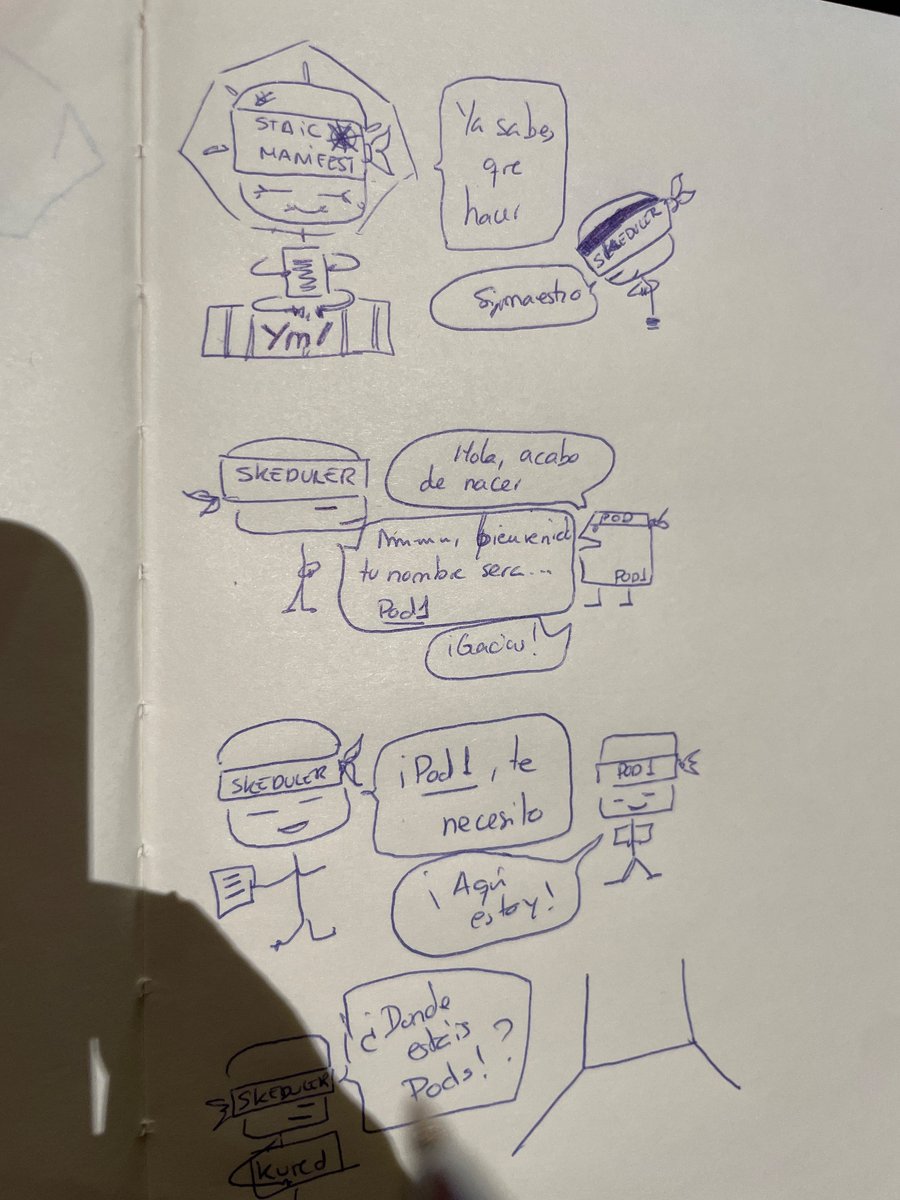 STAIC
MANIFEST
Ya sabes
que
hacer
SKEDULER
Si, maestro
Yml
SKEDULER
Hola, acabo
de nacer
POD
Mmmm, bienvenid
tu nombre sera...
Pod1
POD1
¡Gracias!
SKEDULER
¡Pod1, te
necesito
POD1
¡Aquí
estoy!
¿Donde
estáis
Pods!?
SKEDULER
Kured